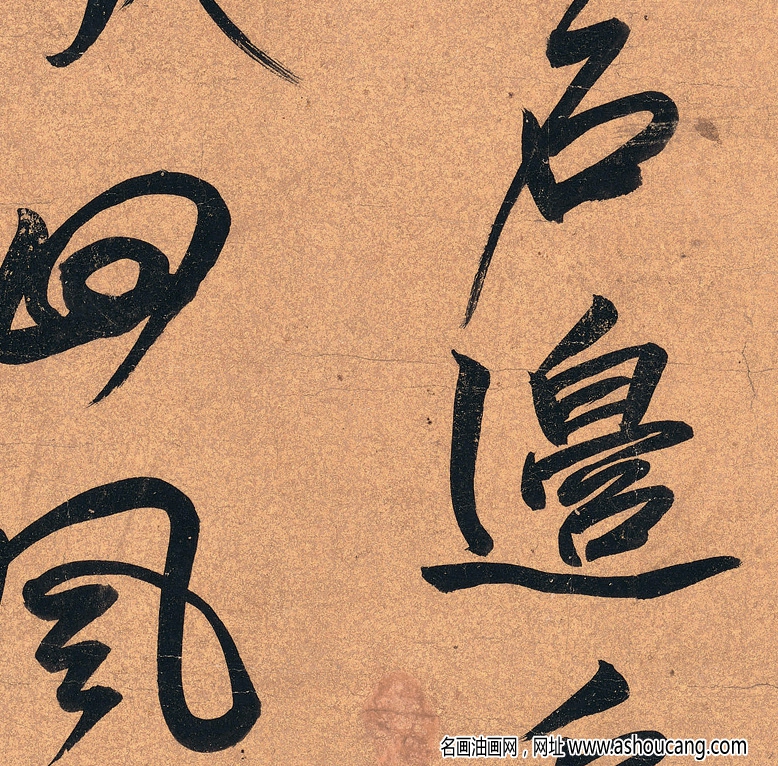 户邊
回風
名画油画网，网址 www.ashoucang.com